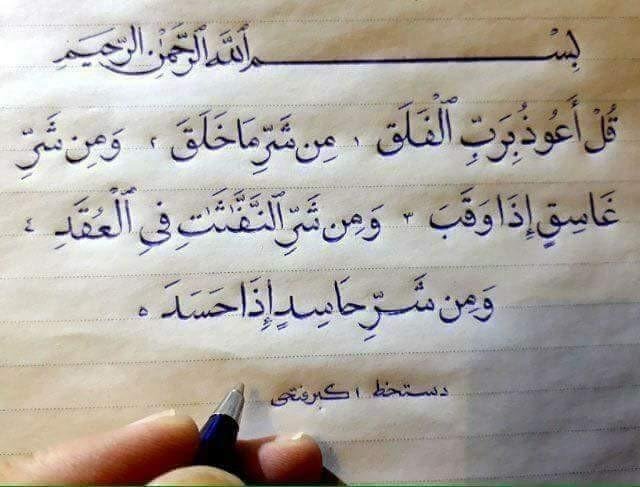 بِسْمِ ٱللَّهِ ٱلرَّحْمَٰنِ ٱلرَّحِيمِ
قُلْ أَعُوذُ بِرَبِّ ٱلْفَلَقِ ١ مِن شَرِّ مَا خَلَقَ ٢ وَمِن شَرِّ
غَاسِقٍ إِذَا وَقَبَ ٣ وَمِن شَرِّ ٱلنَّفَّٰثَٰتِ فِي ٱلْعُقَدِ ٤
وَمِن شَرِّ حَاسِدٍ إِذَا حَسَدَ ٥
دستخط اکبر فتحی